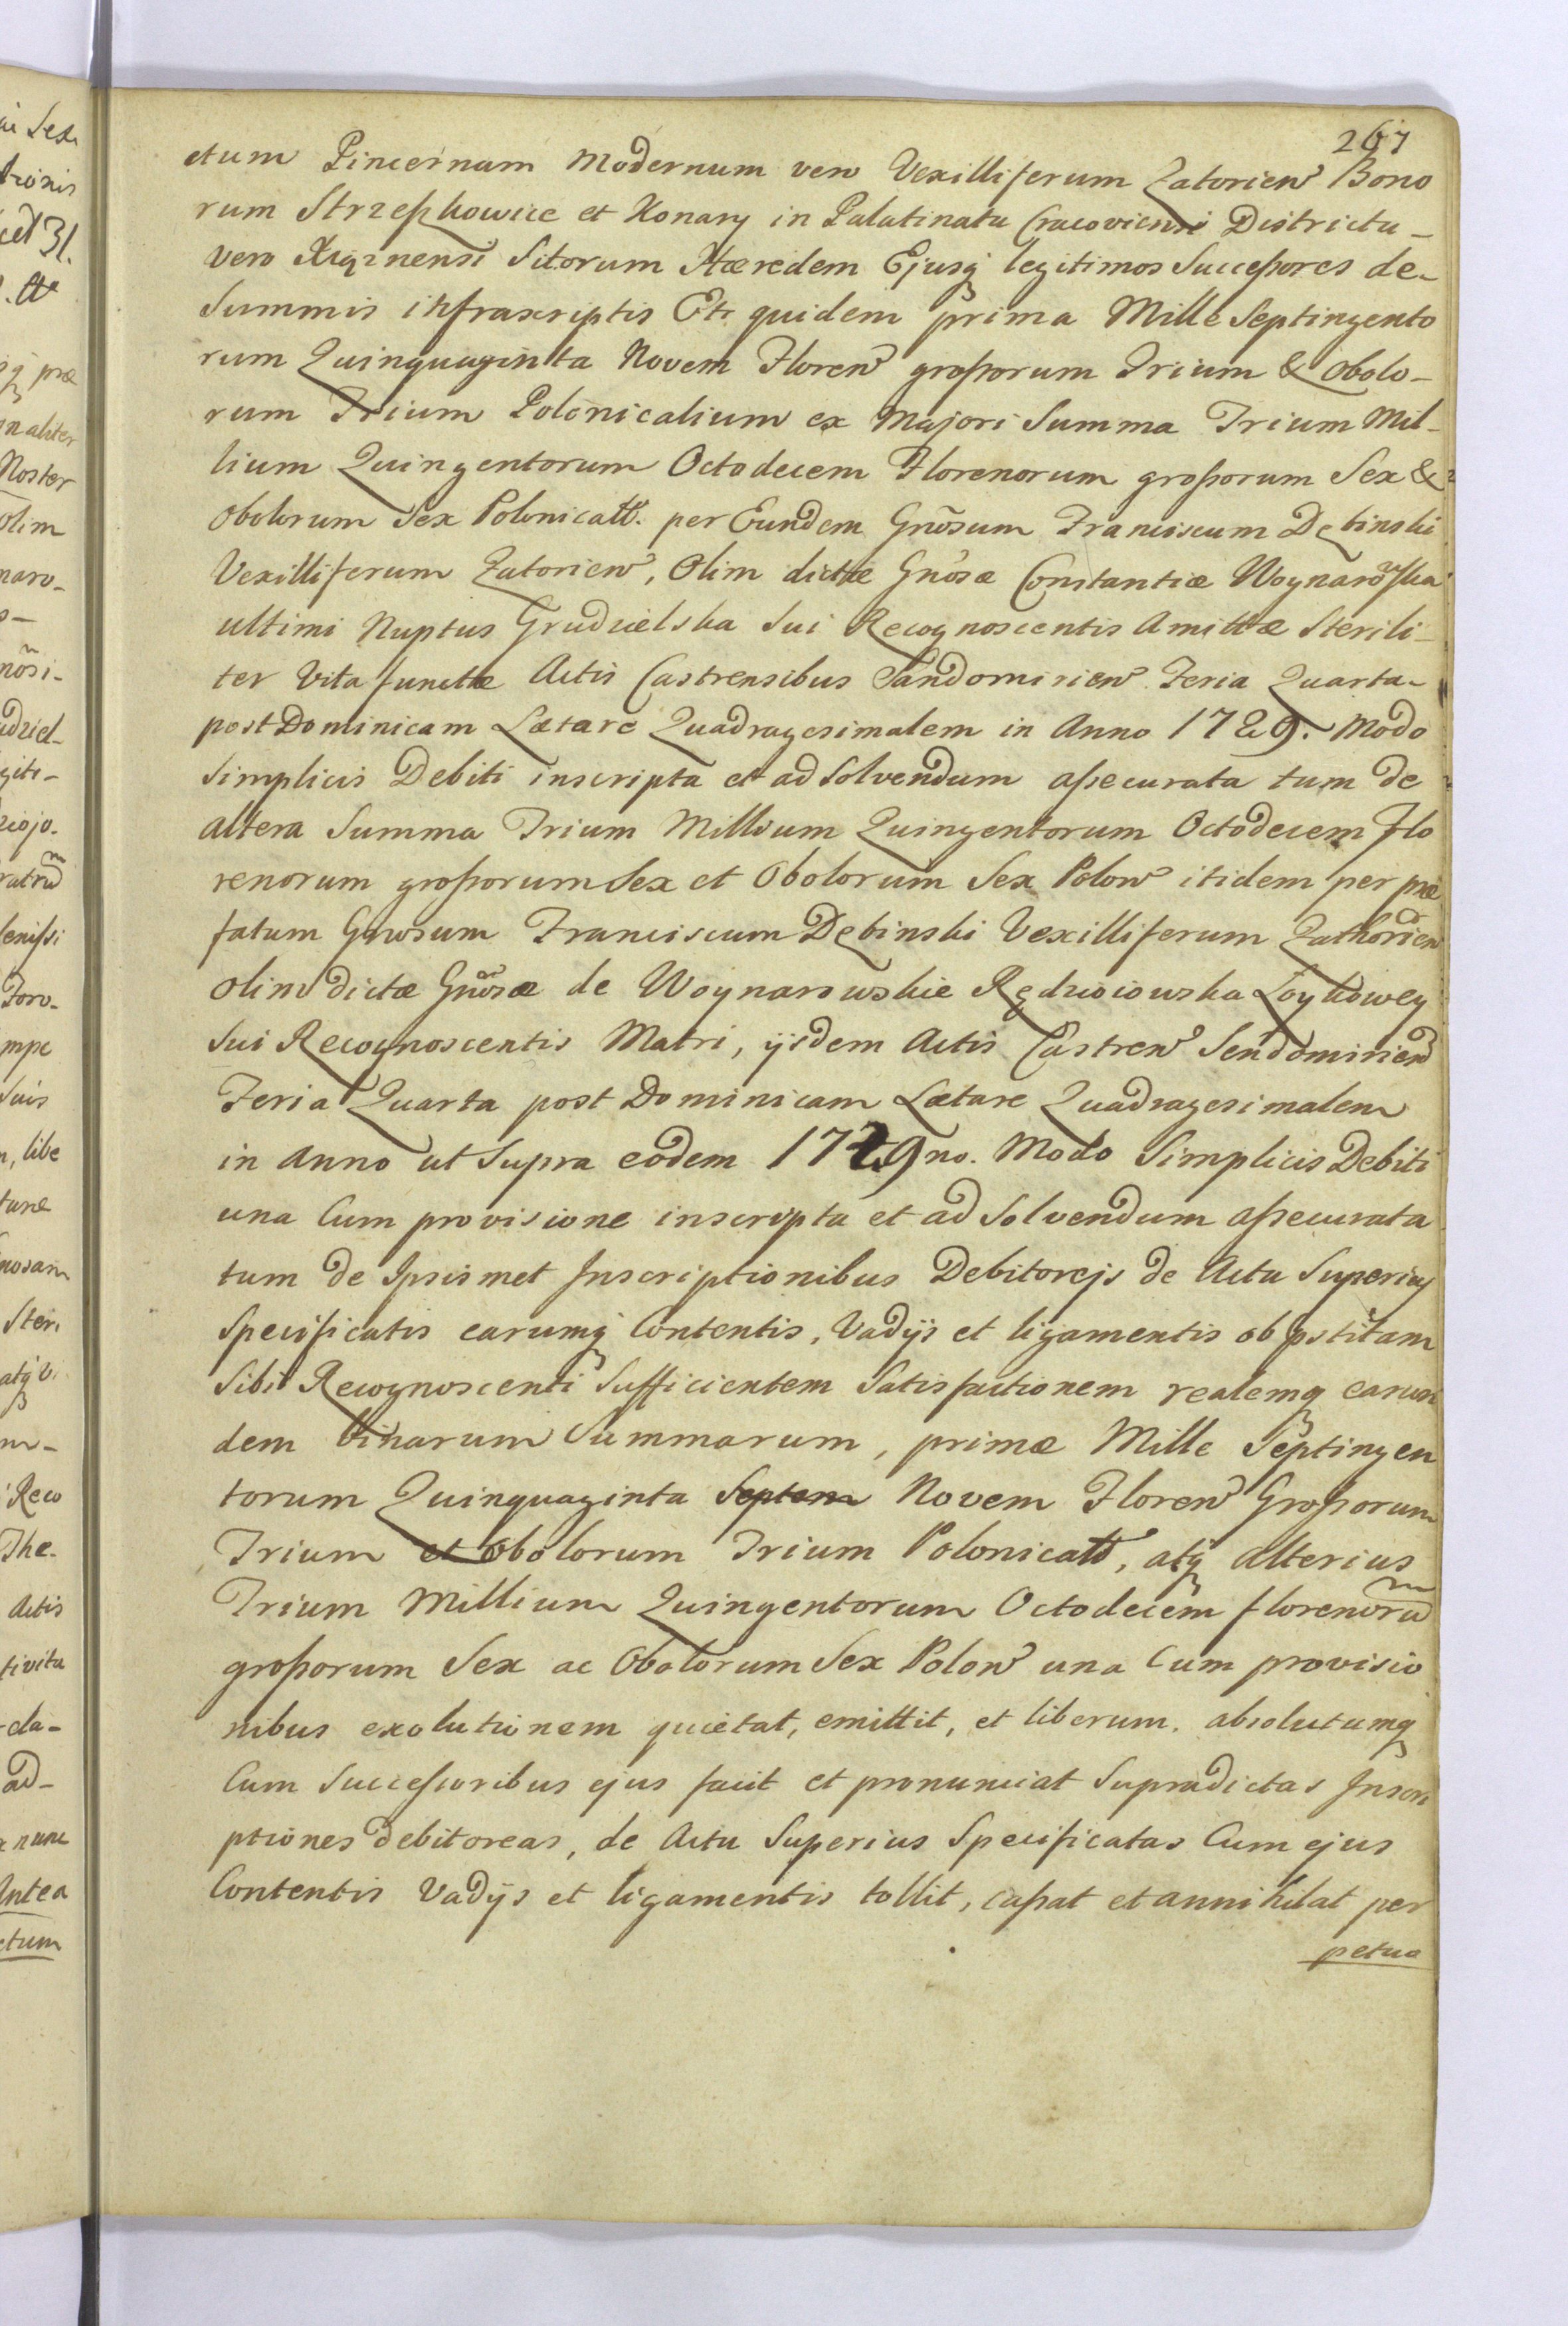 267
etum Pincernam Modernum vero Vexilliferum Zatorien Bono
rum Strzeszkowice et Konary in Palatinatu Cracoviensi Districtu -
vero Xiąznensi Sitorum Hæredem Ejusq legitimos Successores de -
Summis infrascriptis Et quidem prima Mille Septingento
rum Quinquaginta Novem Floren grossorum Trium & obolo -
rum Trium Polonicalium ex Majori Summa Trium Mil -
lium Quingentorum Octodecem Florenorum grossorum Sex &
Obolorum Sex Polonicall. per Eundem Gnõsum Franciscum Dębinski
Vexilliferum Zatorien, Olim dictæ Gnõsæ Constantiæ Woynarowska
ultimi Nuptus Grudzielska Sui Recognoscentis Amittæ Sterili -
ter Vita functæ Actis Castrensibus Sandomirien Feria Quarta -
post Dominicam Lætare Quadragesimalem in Anno 1729. Modo
Simplicis Debiti inscripta et ad Solvendum assecurata tum de
altera Summa Trium Millium Quingentorum Octodecem Flo
renorum grossorum Sex et Obolorum Sex Polon itidem per præ
fatum Gnosum Franciscum Dębinski Vexilliferum Zathorien
olim dictæ Gnõsæ de Woynarowskie Rędziciowska Łoykowey
Sui Recognoscentis Matri, ijsdem Actis Castren Sendomirien
Feria Quarta post Dominicam Lætare Quadragesimalem
in Anno ut Supra eodem 1729no. Modo Simplicis Debiti
una Cum provisione inscripta et ad Solvendum assecurata
tum de Ipsismet Inscriptionibus Debitorejs de Actu Superius
Specificatis earumq Contentis, Vadijs et ligamentis ob pstitam
Sibi Recognoscenti Sufficientem Satisfactionem realemq earun
dem binarum Summarum, primæ Mille Septingen
torum Quinquaginta Septem Novem Floren Grossorum
Trium et Obolorum Trium Polonicall, atq alterius
Trium Millium Quingentorum Octodecem florenorũ
grossorum Sex ac Obolorum Sex Polon una Cum provisio
nibus exolutionem quietat, emittit, et liberum. absolutumq
Cum Successoribus ejus facit et pronunciat Supradictas Inscri
ptiones debitoreas, de Actu Superius Specificatas Cum ejus
Contentis Vadijs et ligamentis tollit, cassat et annihilat per
petuo